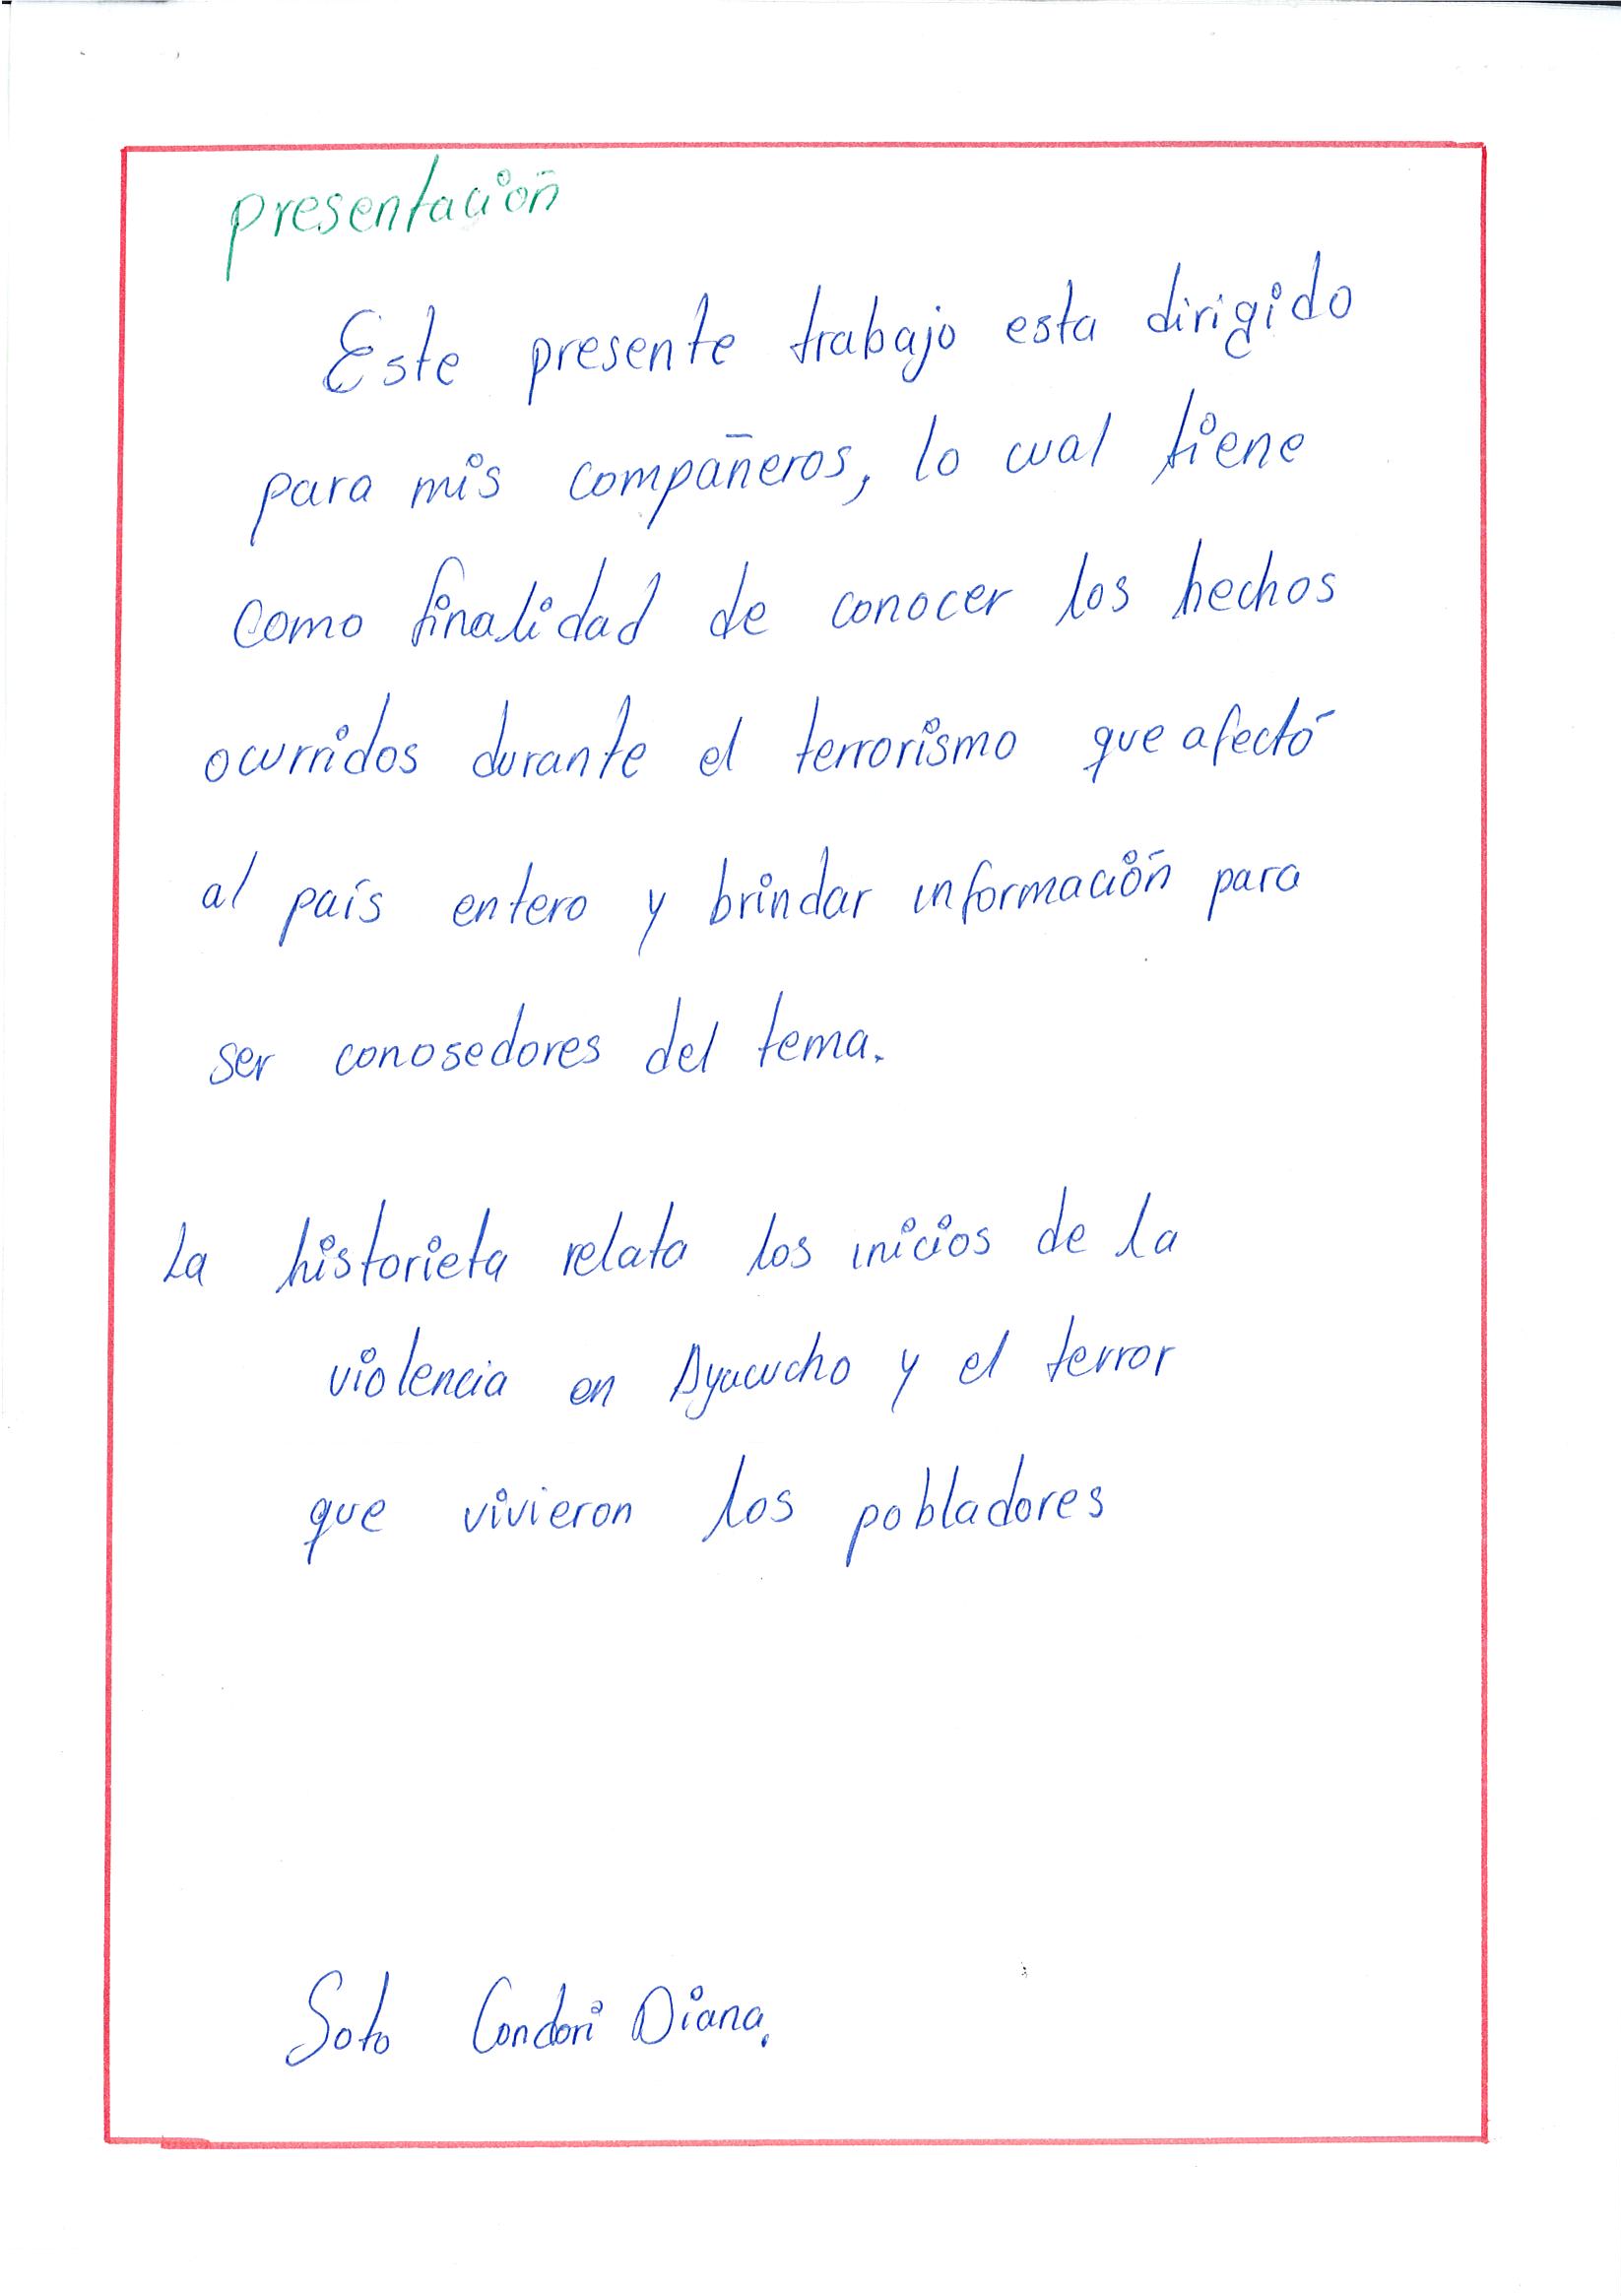 presentación
Este presente trabajo esta dirigido
para mis compañeros, lo cual tiene
como finalidad de conocer los hechos
ocurridos durante el terrorismo que afectó
al país entero y brindar información para
ser conosedores del tema.
La historieta relata los inicios de la
violencia en Ayacucho y el terror
que vivieron los pobladores
Soto Condori Diana.